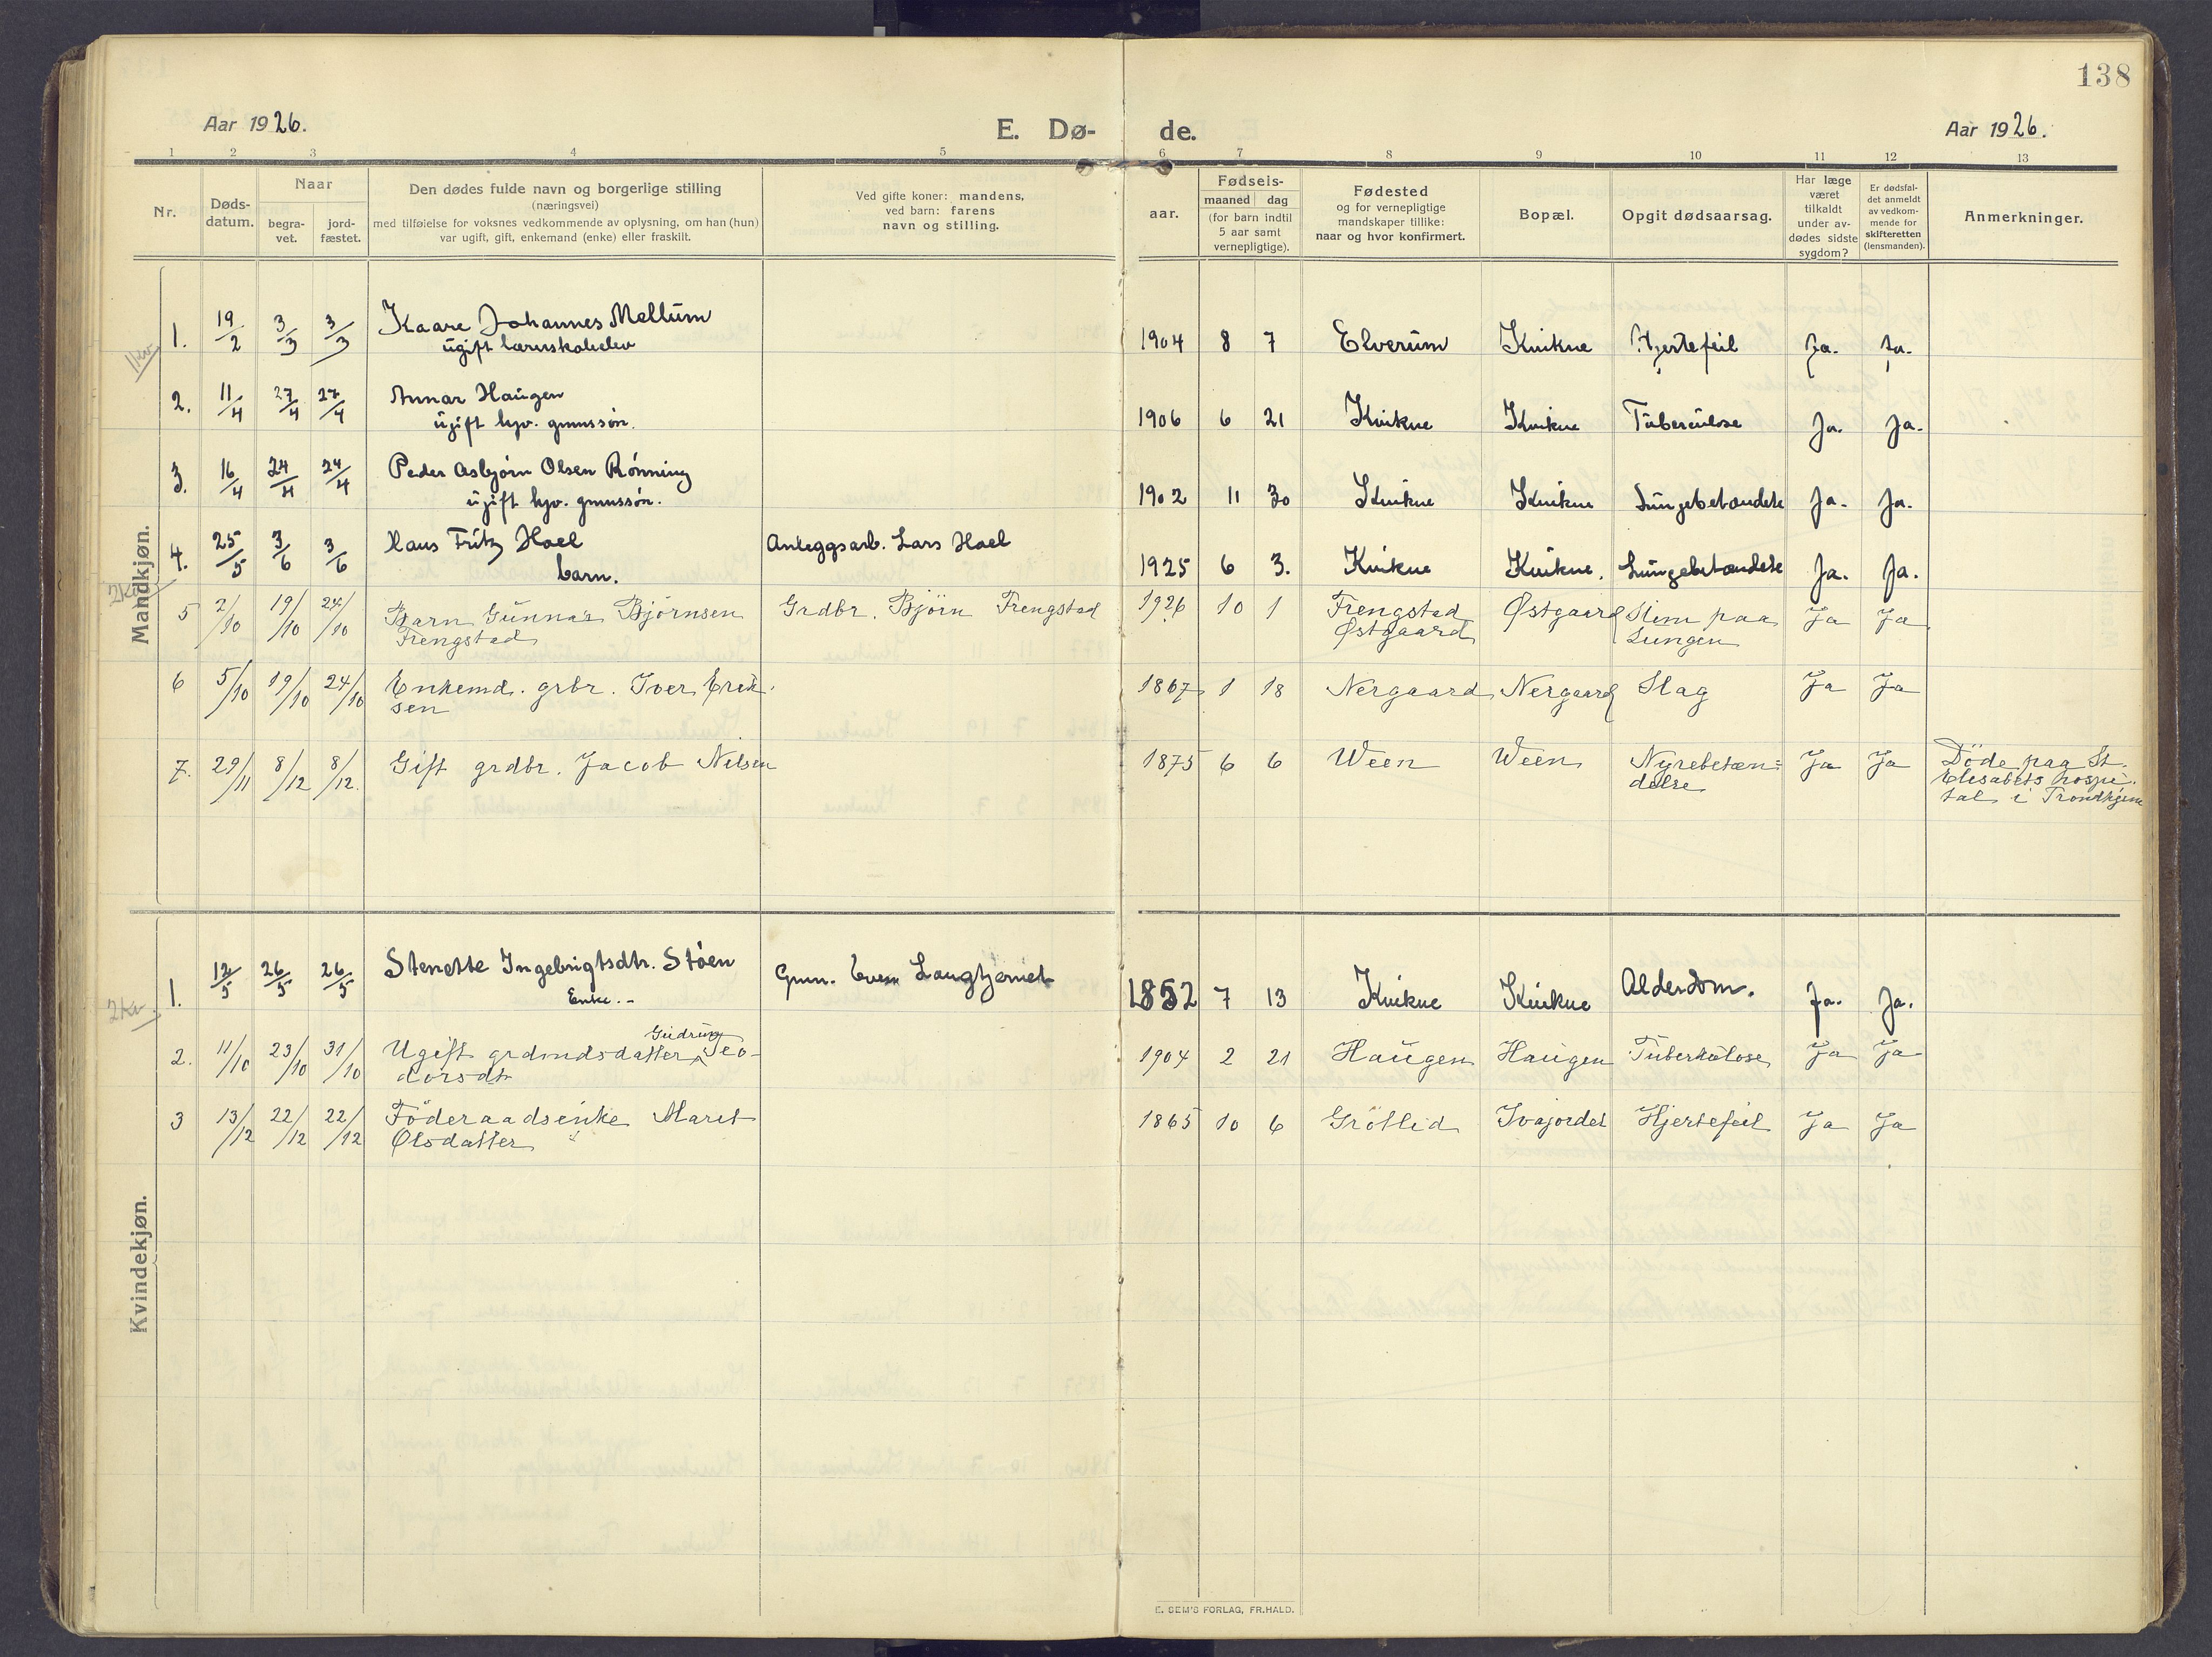 138
Aar 1926. E. Dø- de. Aar 1926.
1 2 3 4 5 6 7 8 9 10 11 12 13
Nr.
Døds-
datum.
Naar
begra-
vet.
jord-
fæstet.
Den dødes fulde navn og borgerlige stilling
(næringsvei)
med tilføielse for voksnes vedkommende av oplysning, om han (hun)
var ugift, gift, enkemand (enke) eller fraskilt.
Ved gifte koner: mandens,
ved barn: farens
navn og stilling.
aar.
Fødsels-
maaned dag
(for barn indtil
5 aar samt
vernepligtige).
Fødested
og for vernepligtige
mandskaper tillike:
naar og hvor konfirmert.
Bopæl.
Opgit dødsaarsag.
Har læge
været
tilkaldt
under av-
dødes sidste
sygdom?
Er dødsfal-
det anmeldt
av vedkom-
mende for
skifteretten
(lensmanden).
Anmerkninger.
Mandkjøn.
1. 19/2 3/3 3/3 Kaare Johannes Mellum 1904 8 7 Elverum Kvikne Hjertefeil Ja. Ja.
ugift
2. 11/4 27/4 27/4 Annar Haugen 1906 6 21 Kvikne Kvikne Tuberculose Ja. Ja.
ugift hjv. gmussøn.
3. 16/4 24/4 24/4 Peder Asbjørn Olsen Rønning 1902 11 30 Kvikne Kvikne Lungebetændelse Ja. Ja.
ugift hjv. gmussøn.
4. 25/5 3/6 3/6 Hans Fritz Hoel Anleggsarb. Lars Hoel 1925 6 3. Kvikne Kvikne. Lungebetændelse Ja. Ja.
barn.
5 2/10 19/10 24/10 Barn Gunnar Bjørnsen Grdbr. Bjørn Frengstad 1926 10 1 Frengstad Østgaard Slim paa Ja Ja
Frengstad Østgaard Lungen
6 5/10 19/10 24/10 Enkemd. grbr. Iver Erik- 1867 1 18 Nergaard Nergaard Slag Ja Ja
sen
7. 29/11 8/12 8/12. Gift grdbr. Jacob Nilsen 1875 6 6 Ween Ween Nyrebetæn= Ja Ja Döde paa St.
delse Elisabets hospi-
tal i Trondhjem
Kvindekjøn.
1. 12/5 26/5 26/5 Stenette Ingebrigtsdtr. Støen Gmn. Even Langtjernet 1852 7 13 Kvikne Kvikne Alderdom. Ja. Ja.
Enke.-
Gudrun
2. 11/10 23/10 31/10 Ugift grdmdsdatter Teo- 1904 2 21 Haugen Haugen Tuberkulose Ja Ja
dorsdt
3 13/12 22/12 22/12 Föderaadsenke Maret 1865 10 6 Grötlid Ivajordet Hjertefeil Ja Ja
Olsdatter
2Kv
E. SEM'S FORLAG, FR.HALD.